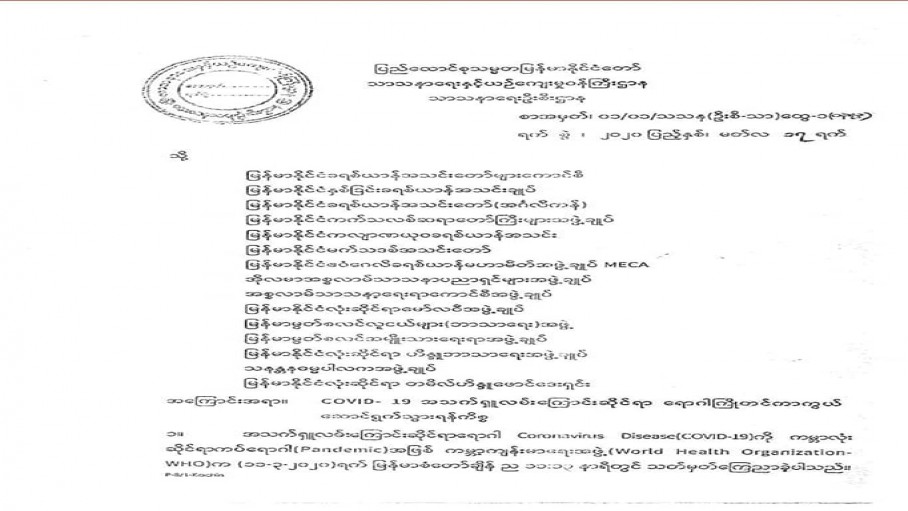 ပြည်ထောင်စုသမ္မတမြန်မာနိုင်ငံတော်
သာသနာရေးနှင့်ယဉ်ကျေးမှုဝန်ကြီးဌာန
သာသနာရေးဦးစီးဌာန
စာအမှတ်၊ ၀၁/၀၁/သသန(ဦးစီ-သာ)ထွေ-၁
ရက် စွဲ ၊ ၂၀၂၀ ပြည့်နှစ်၊ မတ်လ ၁၇ ရက်
သို့
မြန်မာနိုင်ငံခရစ်ယာန်အသင်းတော်များကောင်စီ
မြန်မာနိုင်ငံနှစ်ခြင်းခရစ်ယာန်အသင်းချုပ်
မြန်မာနိုင်ငံခရစ်ယာန်အသင်းတော်(အင်္ဂလီကန်)
မြန်မာနိုင်ငံကက်သလစ်ဆရာတော်ကြီးများအဖွဲ့ချုပ်
မြန်မာနိုင်ငံကလျာဏယုဝခရစ်ယာန်အသင်း
မြန်မာနိုင်ငံမက်သဒစ်အသင်းတော်
မြန်မာနိုင်ငံဧဝံဂေလိခရစ်ယာန်မဟာမိတ်အဖွဲ့ချုပ် MECA
အိုလမာအစ္စလာမ်သာသနာပညာရှင်များအဖွဲ့ချုပ်
အစ္စလာမ်သာသနာ့ရေးရာကောင်စီအဖွဲ့ချုပ်
မြန်မာနိုင်ငံလုံးဆိုင်ရာမော်လဝီအဖွဲ့ချုပ်
မြန်မာမွတ်စလင်လူငယ်များ(ဘာသာရေး)အဖွဲ့
မြန်မာမွတ်စလင်အမျိုးသားရေးရာအဖွဲ့ချုပ်
မြန်မာနိုင်ငံလုံးဆိုင်ရာ ဟိန္ဒူဘာသာရေးအဖွဲ့ချုပ်
သနန္တနဓမ္မပါလကအဖွဲ့ချုပ်
မြန်မာနိုင်ငံလုံးဆိုင်ရာ တမီလ်ဟိန္ဒူဖောင်ဒေးရှင်း
အကြောင်းအရာ။ COVID- 19 အသက်ရှူလမ်းကြောင်းဆိုင်ရာ ရောဂါကြိုတင်ကာကွယ်
ဆောင်ရွက်သွားရန်ကိစ္စ
၁။ အသက်ရှူလမ်းကြောင်းဆိုင်ရာရောဂါ Coronavirus Disease(COVID-19)ကို ကမ္ဘာလုံး
ဆိုင်ရာကပ်ရောဂါ(Pandemic)အဖြစ် ကမ္ဘာကျန်းမာရေးအဖွဲ့(World Health Organization-
WHO)က (၁၁-၃-၂၀၂၀)ရက် မြန်မာစံတော်ချိန် ည နာရီတွင် သတ်မှတ်ကြေညာခဲ့ပါသည်။